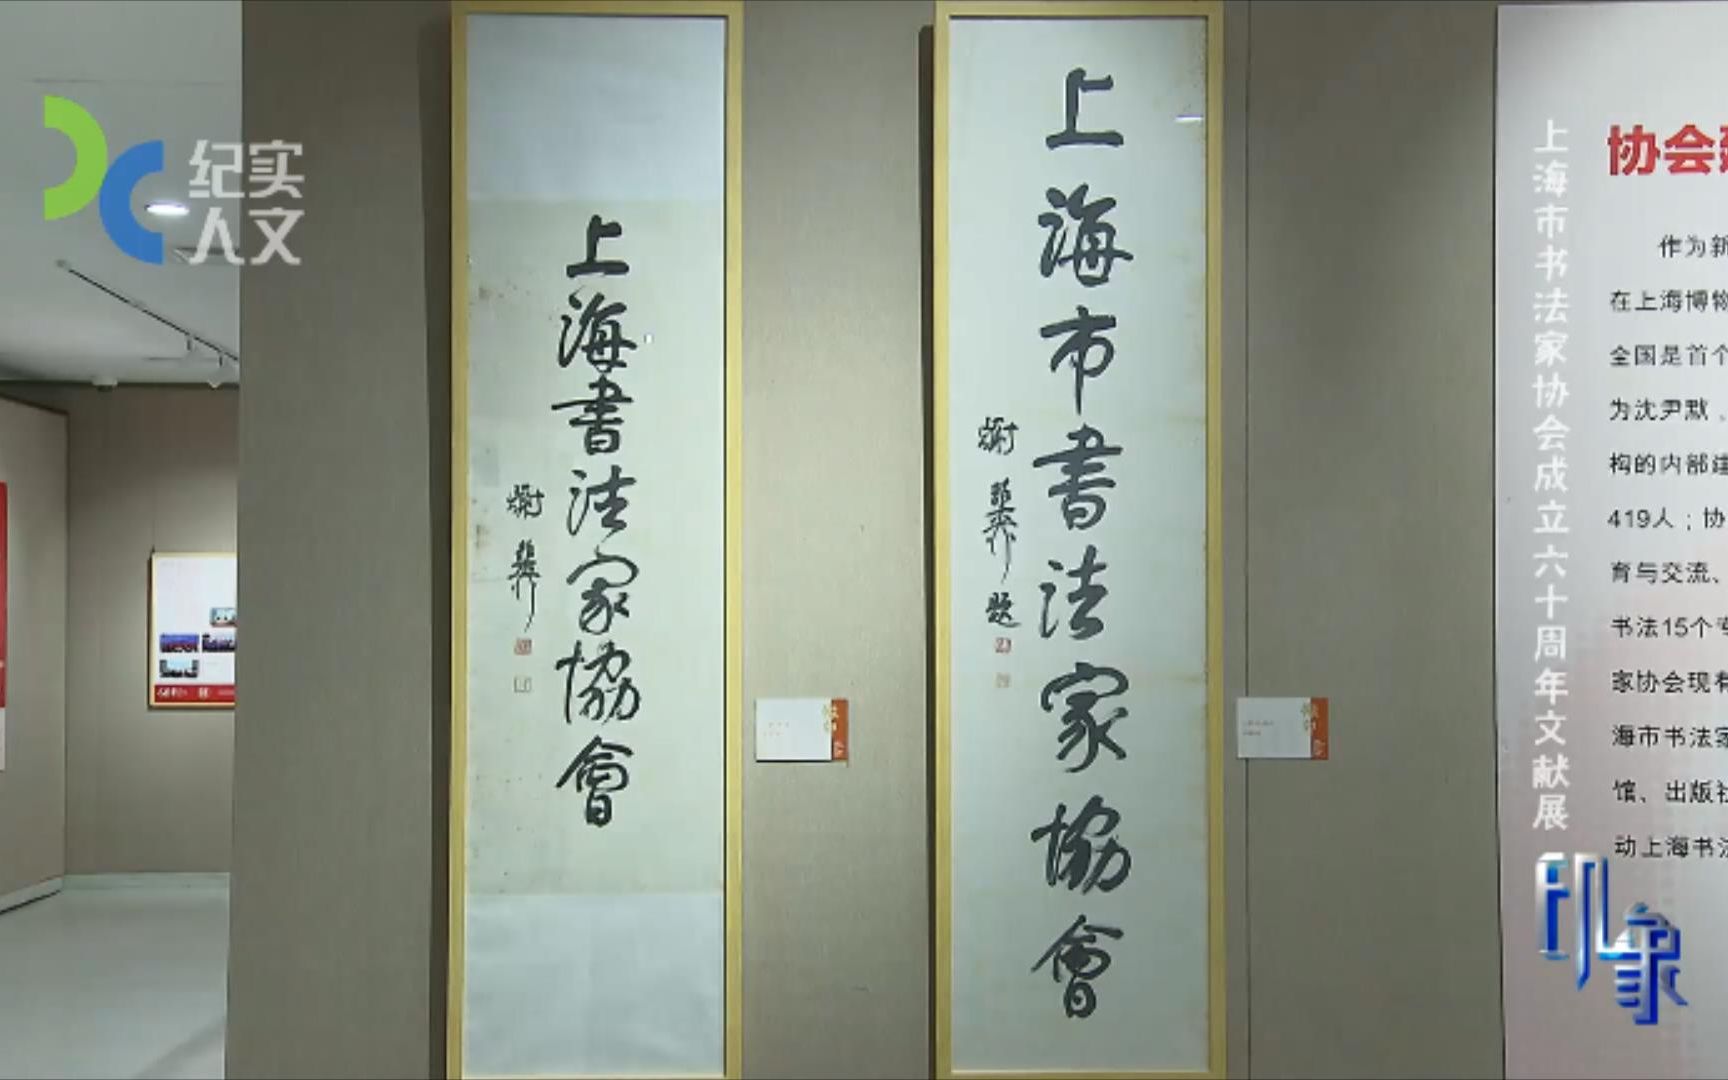 纪实
人文
上海書法家協會
謝稚柳
上海市書法家協會
謝稚柳題
上海市书法家协会成立六十周年文献展
印象
协会
作为新
在上海博物
全国是首个
为沈尹默、
构的内部建
419人；协
育与交流、
书法15个专
家协会现有
海市书法家
馆、出版社
动上海书法